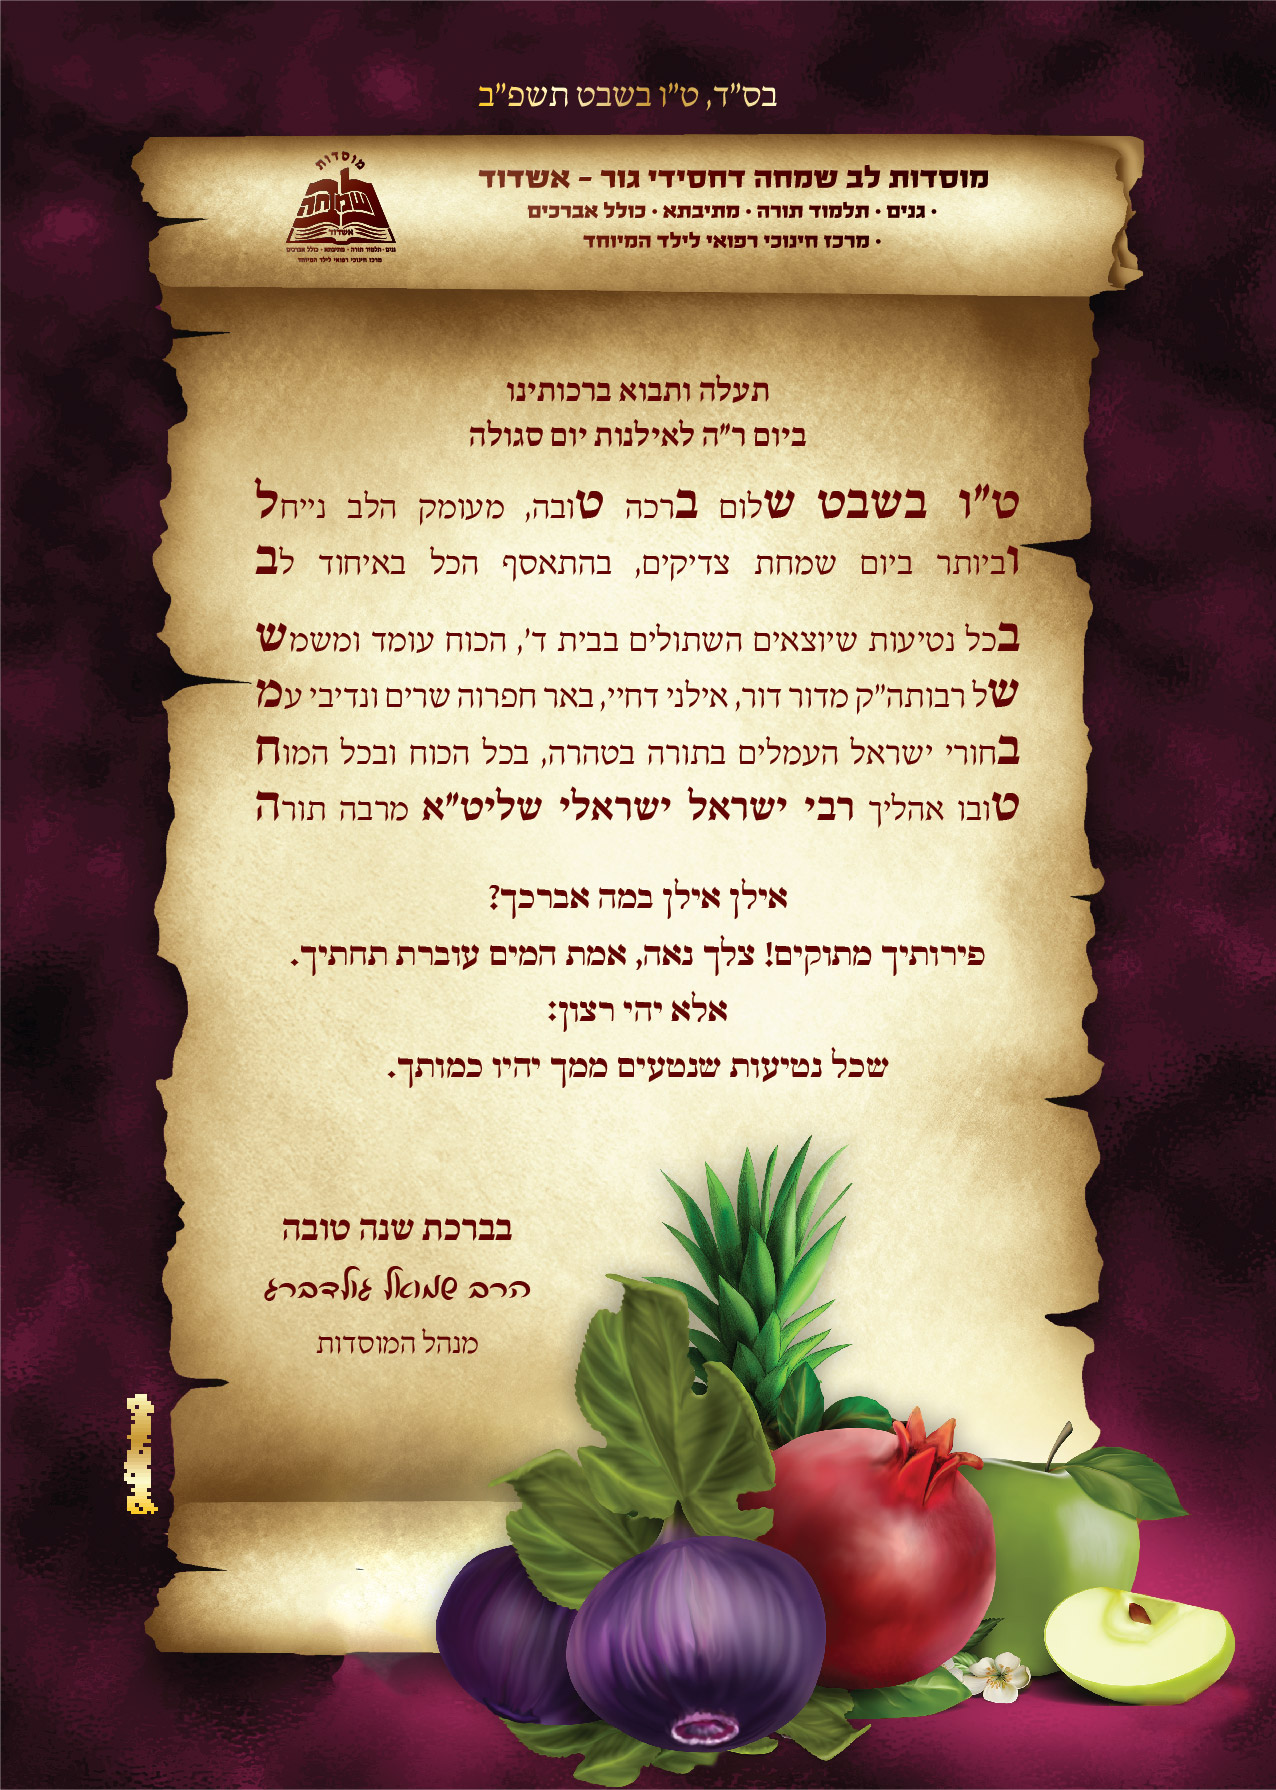 בס"ד, ט"ו בשבט תשפ"ב
מוסדות לב שמחה דחסידי גור - אשדוד
• גנים • תלמוד תורה • מתיבתא • כולל אברכים
• מרכז חינוכי רפואי לילד המיוחד
מוסדות
שמחה
אשדוד
גנים • תלמוד תורה • מתיבתא • כולל אברכים
מרכז חינוכי רפואי לילד המיוחד
תעלה ותבוא ברכותינו
ביום ר"ה לאילנות יום סגולה
ט"ו בשבט שלום ברכה טובה, מעומק הלב נייחל
וביותר ביום שמחת צדיקים, בהתאסף הכל באיחוד לב
בכל נטיעות שיוצאים השתולים בבית ד', הכוח עומד ומשמש
של רבותה"ק מדור דור, אילני דחיי, באר חפרוה שרים ונדיבי עמ
בחורי ישראל העמלים בתורה בטהרה, בכל הכוח ובכל המוח
טובו אהליך רבי ישראל ישראלי שליט"א מרבה תורה
אילן אילן במה אברכך?
פירותיך מתוקים! צלך נאה, אמת המים עוברת תחתיך.
אלא יהי רצון:
שכל נטיעות שנטעים ממך יהיו כמותך.
בברכת שנה טובה
הרב שמואל גולדברג
מנהל המוסדות